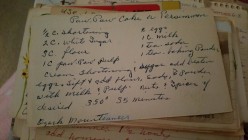 Paw Paw Cake or Persimmon
½ C. shortening 2 eggs
2 C. White Sugar 1 C milk
2 C. flour 1 tea. soda
1 C paw Paw Pulp 1 tea. baking Powder
Cream Shortening, Sugar add beaten
eggs. Sift & add Flour, Soda, B. Powder
with Milk & Pulp. Nuts & Spices if
desired 350° 35 minutes
Ozark Mountaineer